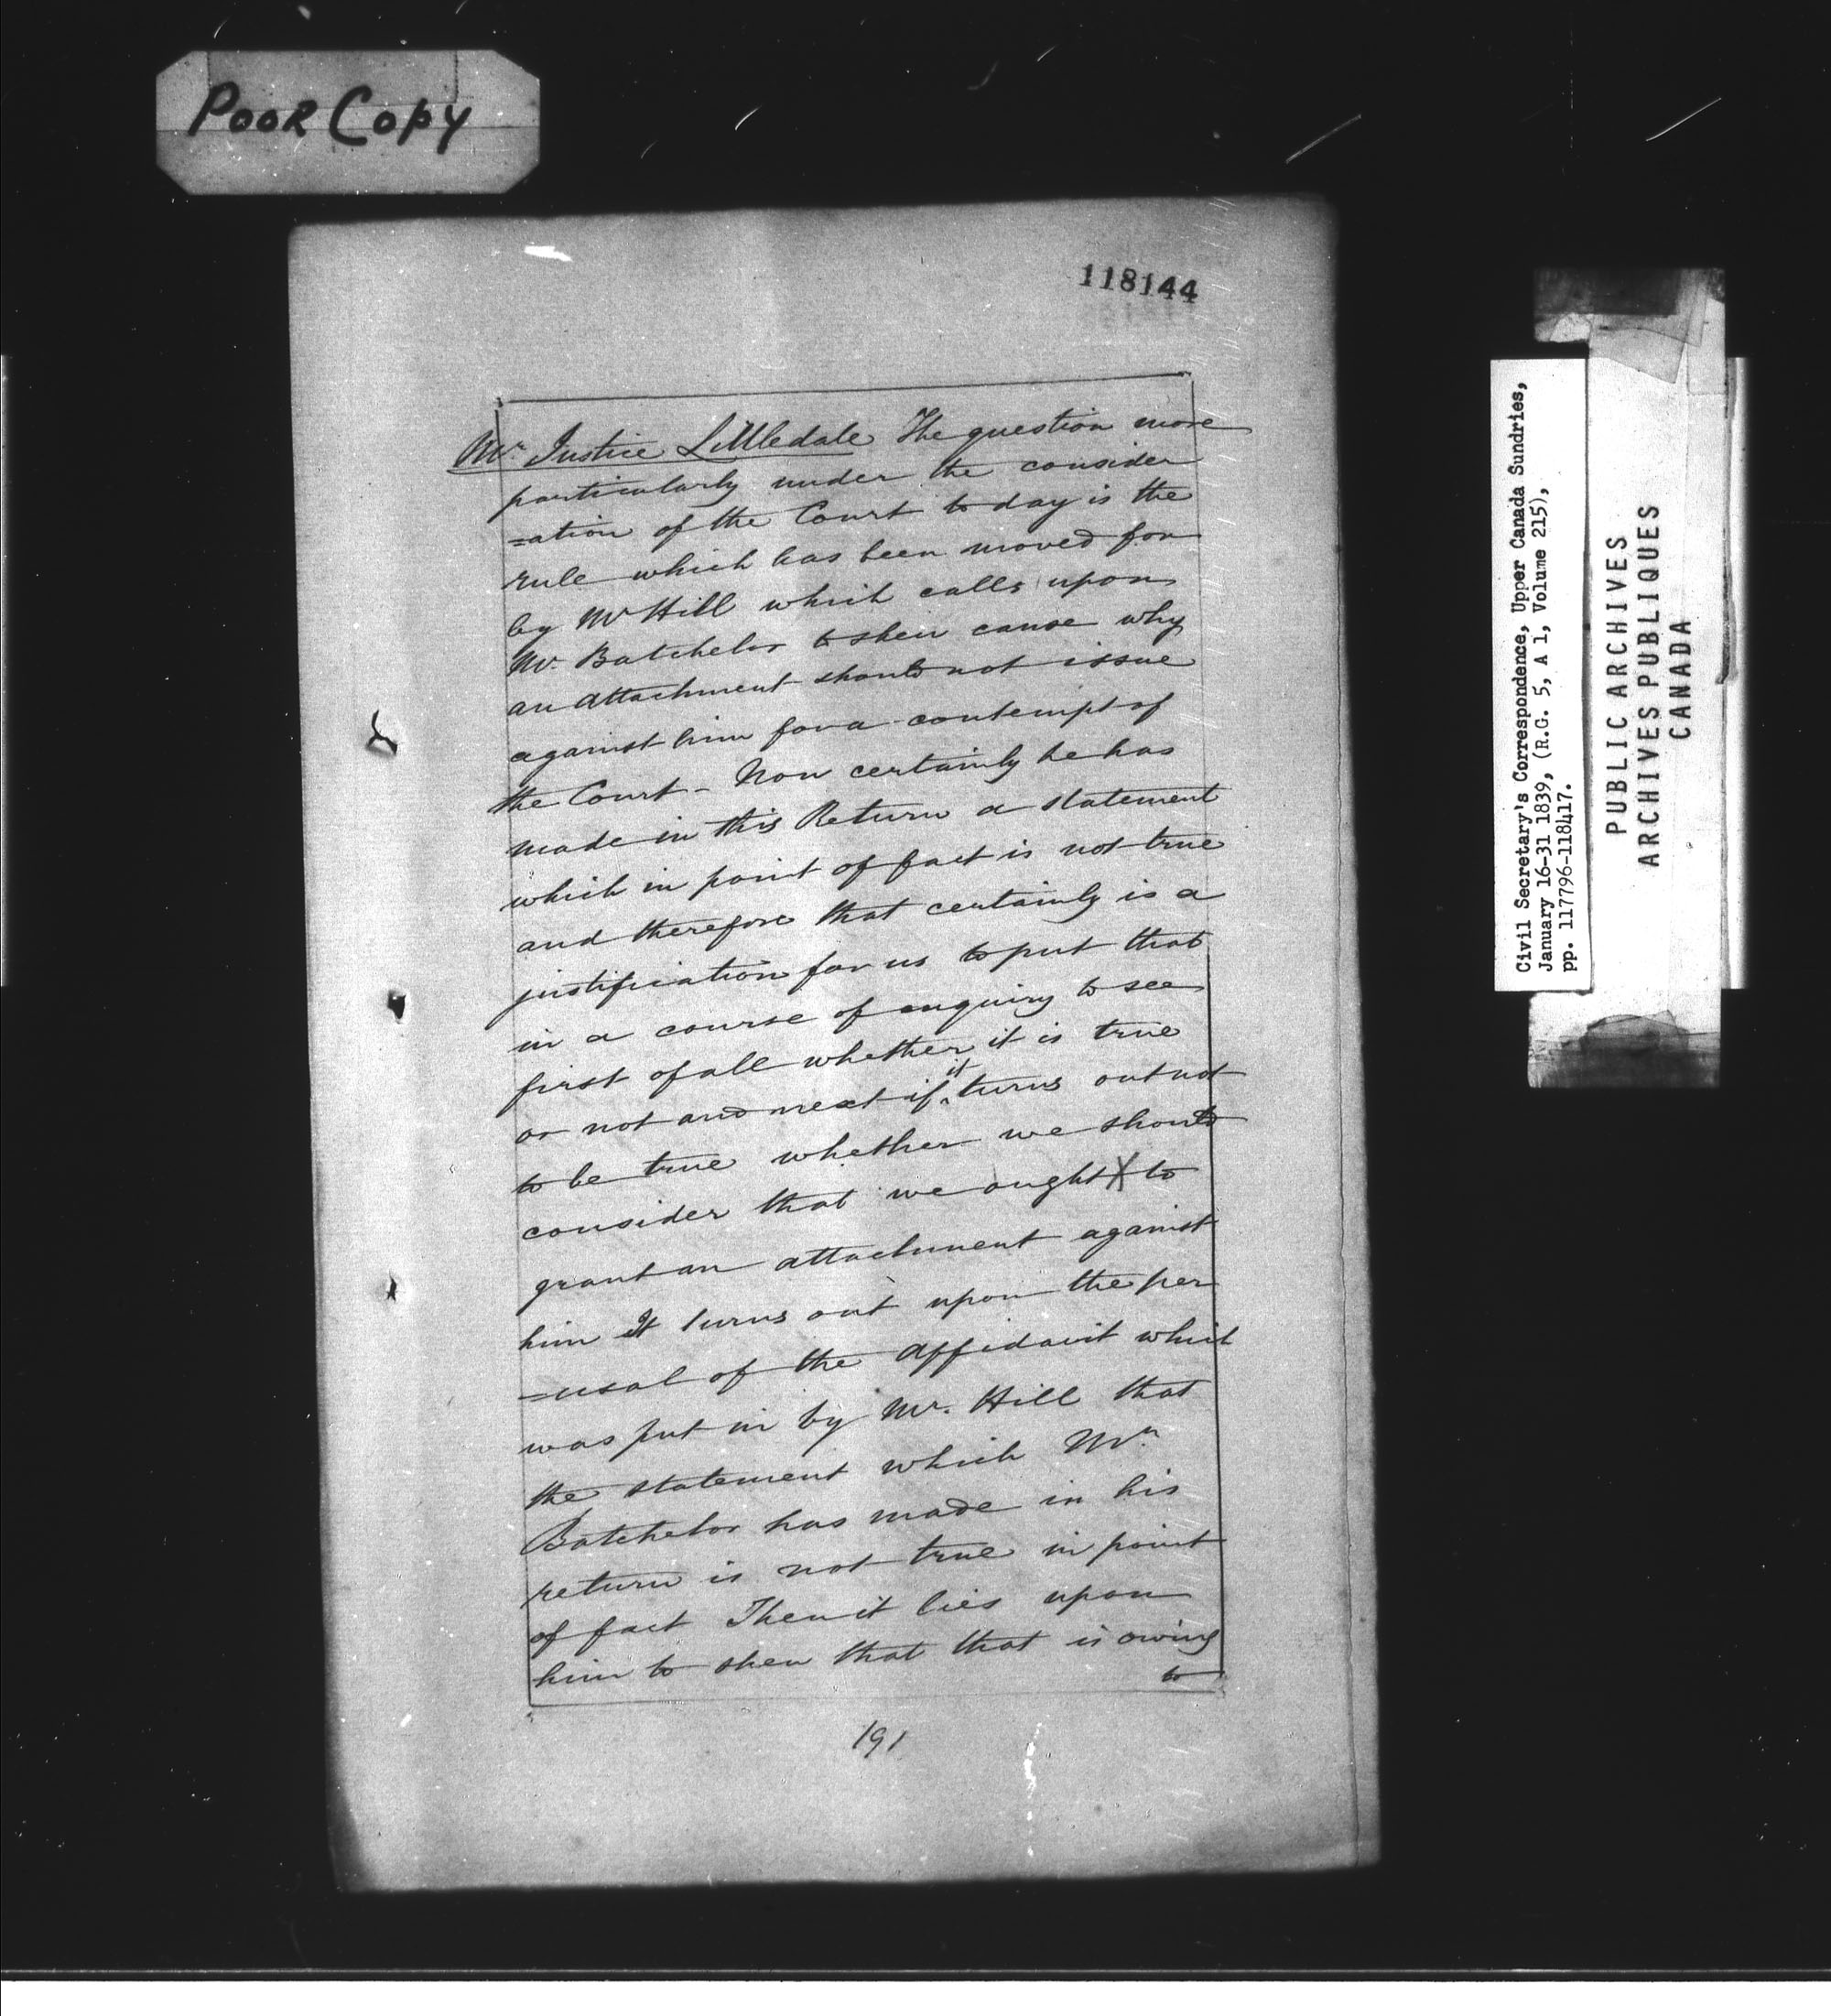 POOR COPY
118144
Mr Justice Littledale The question more
particularly under the consider
=ation of the Court to day is the
rule which has been moved for
by Mr Hill which calls upon
Mr. Batchelor to shew cause why
an attachment should not issue
against him for a contempt of
the Court - Now certainly he has
made in this Return a statement
which in point of fact is not true
and therefore that certainly is a
justification for us to put that
in a course of enquiry to see
first of all whether it is true
or not and next if it turns out not
to be true whether we should
consider that we ought to
grant an attachment against
him It turns out upon the per
=usal of the affidavit which
was put in by Mr. Hill that
the statement which Mr.
Batchelor has made in his
return is not true in point
of fact Then it lies upon
him to shew that that is owing
to
191
Civil Secretary's Correspondence, Upper Canada Sundries,
January 16-31 1839, (R.G. 5, A 1, Volume 215),
pp. 117796-118417.
PUBLIC ARCHIVES
ARCHIVES PUBLIQUES
CANADA